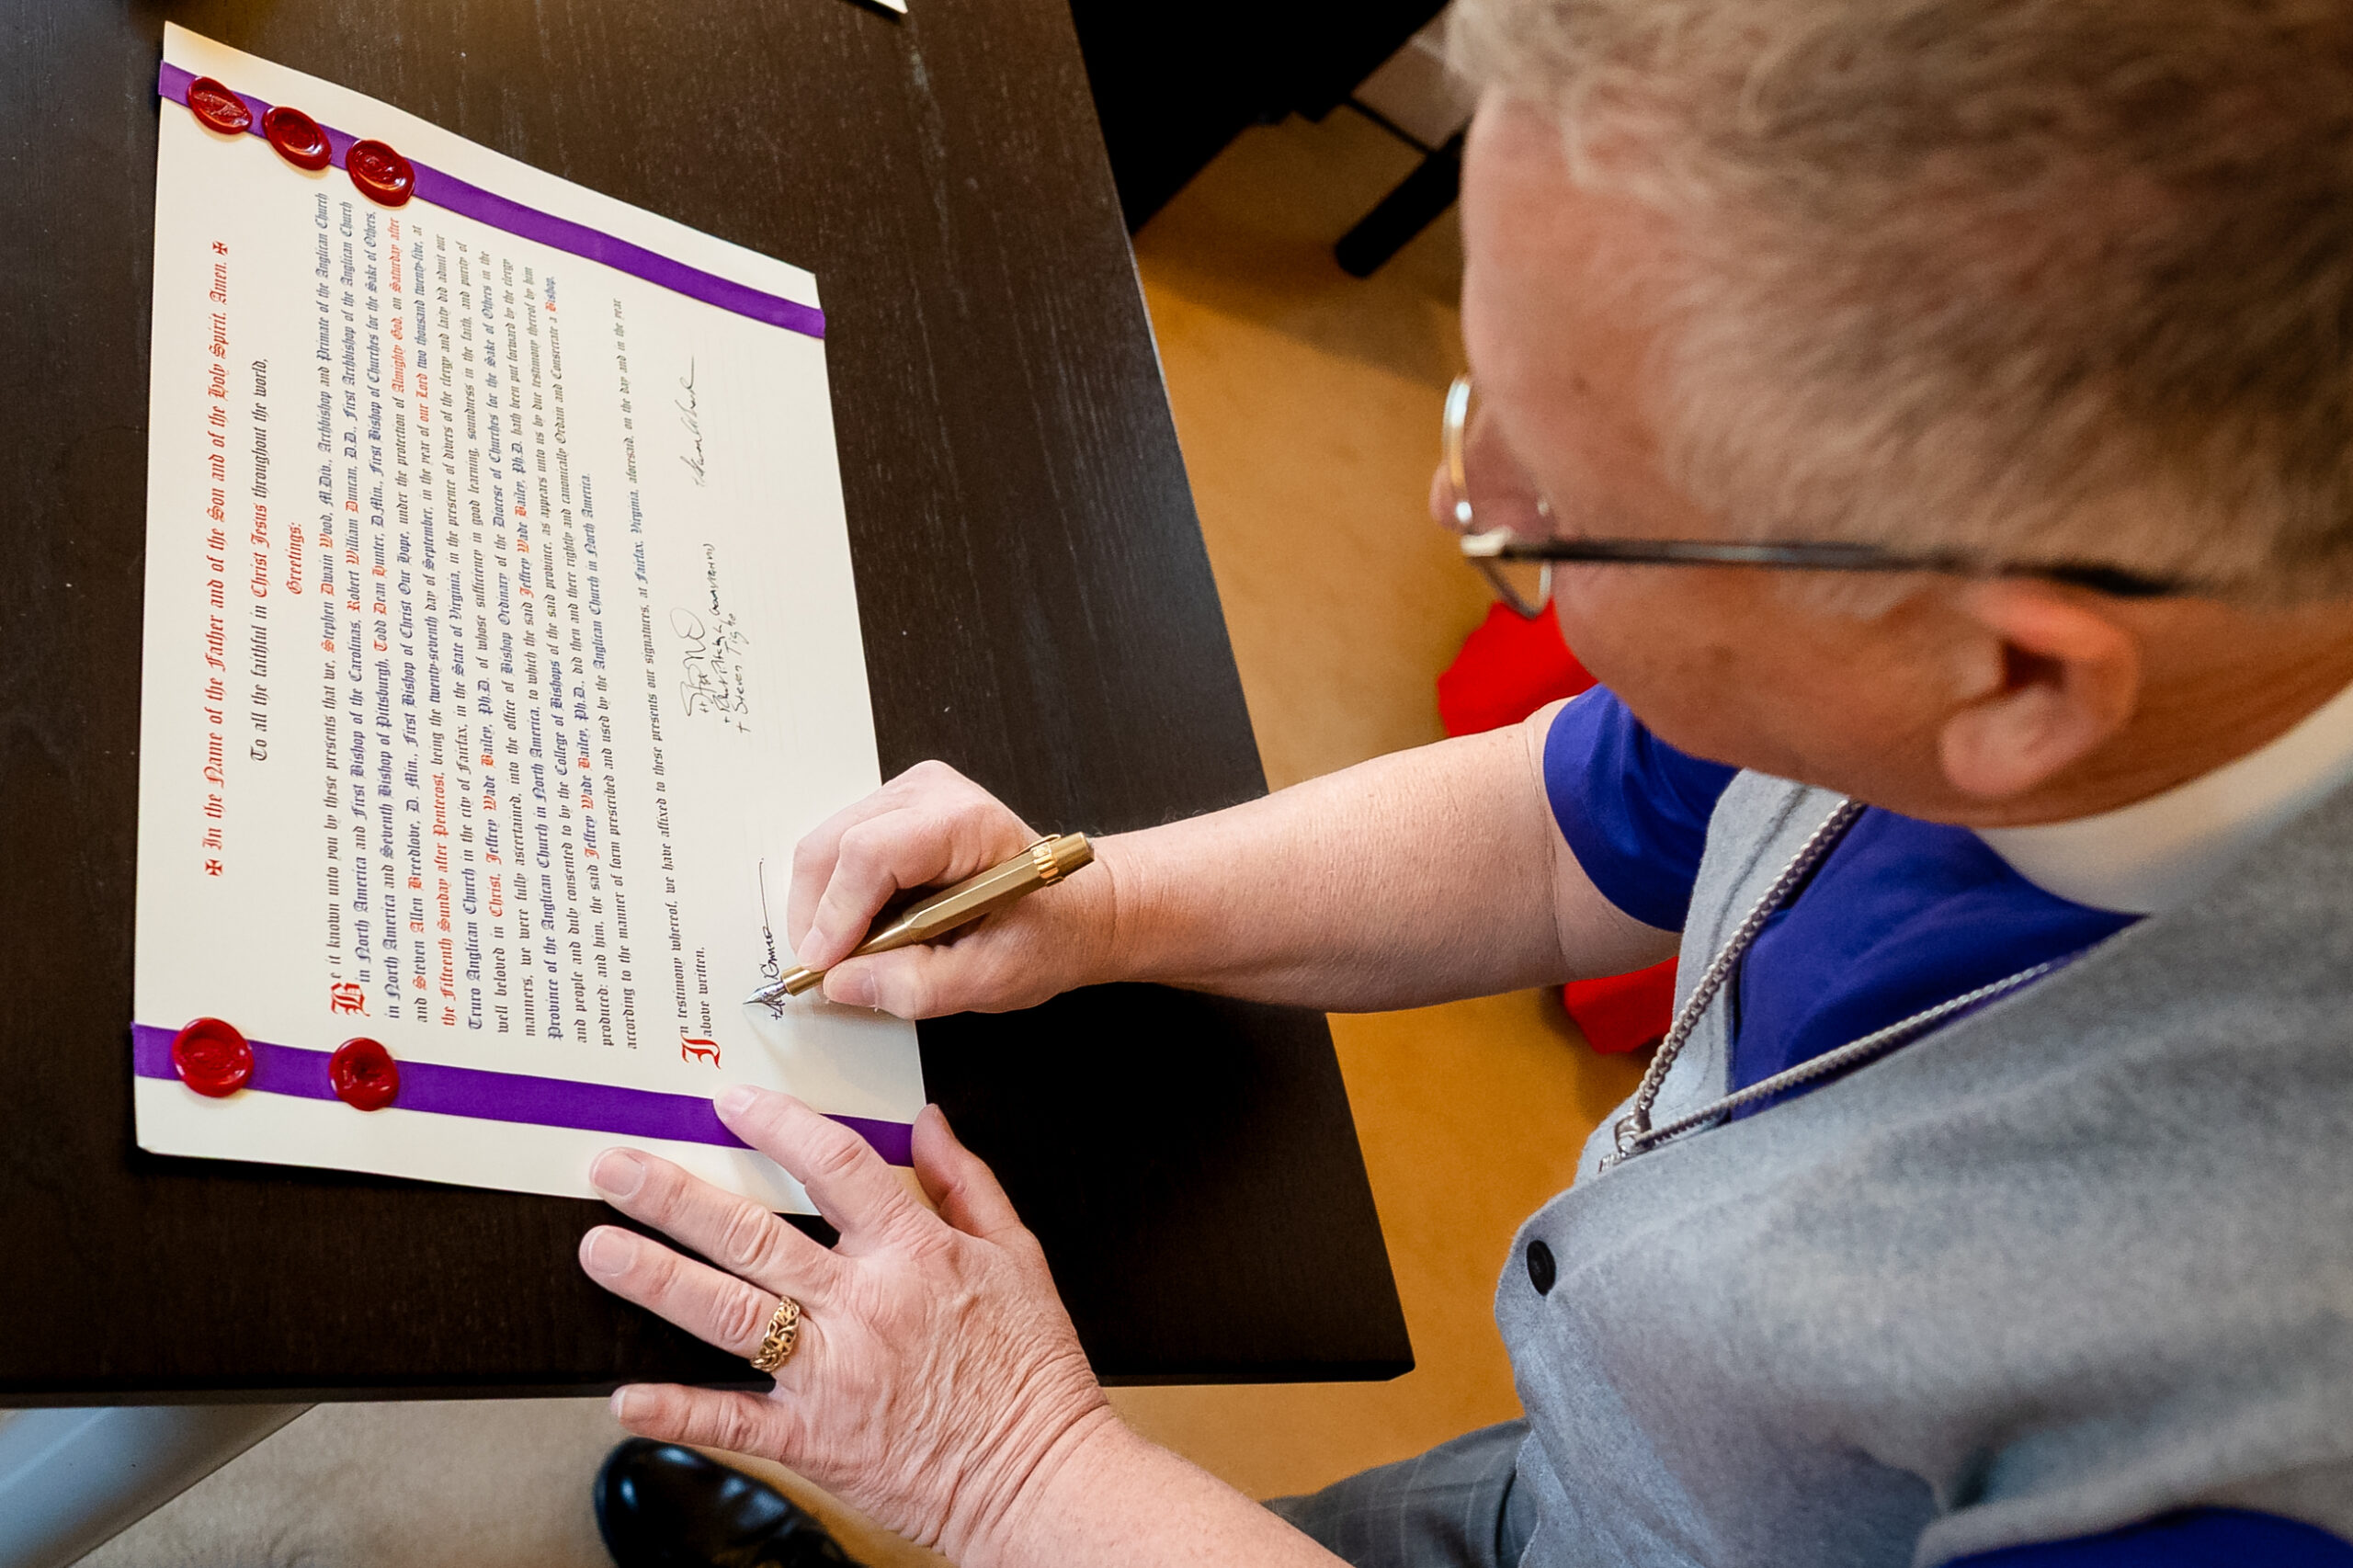 ✠ In the Name of the Father and of the Son and of the Holy Spirit. Amen. ✠
To all the faithful in Christ Jesus throughout the world,
Greetings:
Be it known unto you by these presents that we, Stephen Dwain Wood, M.Div., Archbishop and Primate of the Anglican Church
in North America and First Bishop of the Carolinas, Robert William Duncan, D.D., First Archbishop of the Anglican Church
in North America and Seventh Bishop of Pittsburgh, Todd Dean Hunter, D.Min., First Bishop of Churches for the Sake of Others,
and Steven Allen Breedlove, D. Min., First Bishop of Christ Our Hope, under the protection of Almighty God, on Saturday after
the Fifteenth Sunday after Pentecost, being the twenty-seventh day of September, in the year of our Lord two thousand twenty-five, at
Truro Anglican Church in the city of Fairfax, in the State of Virginia, in the presence of divers of the clergy and laity did admit our
well beloved in Christ, Jeffrey Wade Bailey, Ph.D. of whose sufficiency in good learning, soundness in the faith, and purity of
manners, we were fully ascertained, into the office of Bishop Ordinary of the Diocese of Churches for the Sake of Others in the
Province of the Anglican Church in North America, to which the said Jeffrey Wade Bailey, Ph.D. hath been put forward by the clergy
and people and duly consented to by the College of Bishops of the said province, as appears unto us by due testimony thereof by him
produced; and him, the said Jeffrey Wade Bailey, Ph.D., did then and there rightly and canonically Ordain and Consecrate a Bishop,
according to the manner of form prescribed and used by the Anglican Church in North America.
In testimony whereof, we have affixed to these presents our signatures, at Fairfax, Virginia, aforesaid, on the day and in the year
above written.
+ Steven Tighe